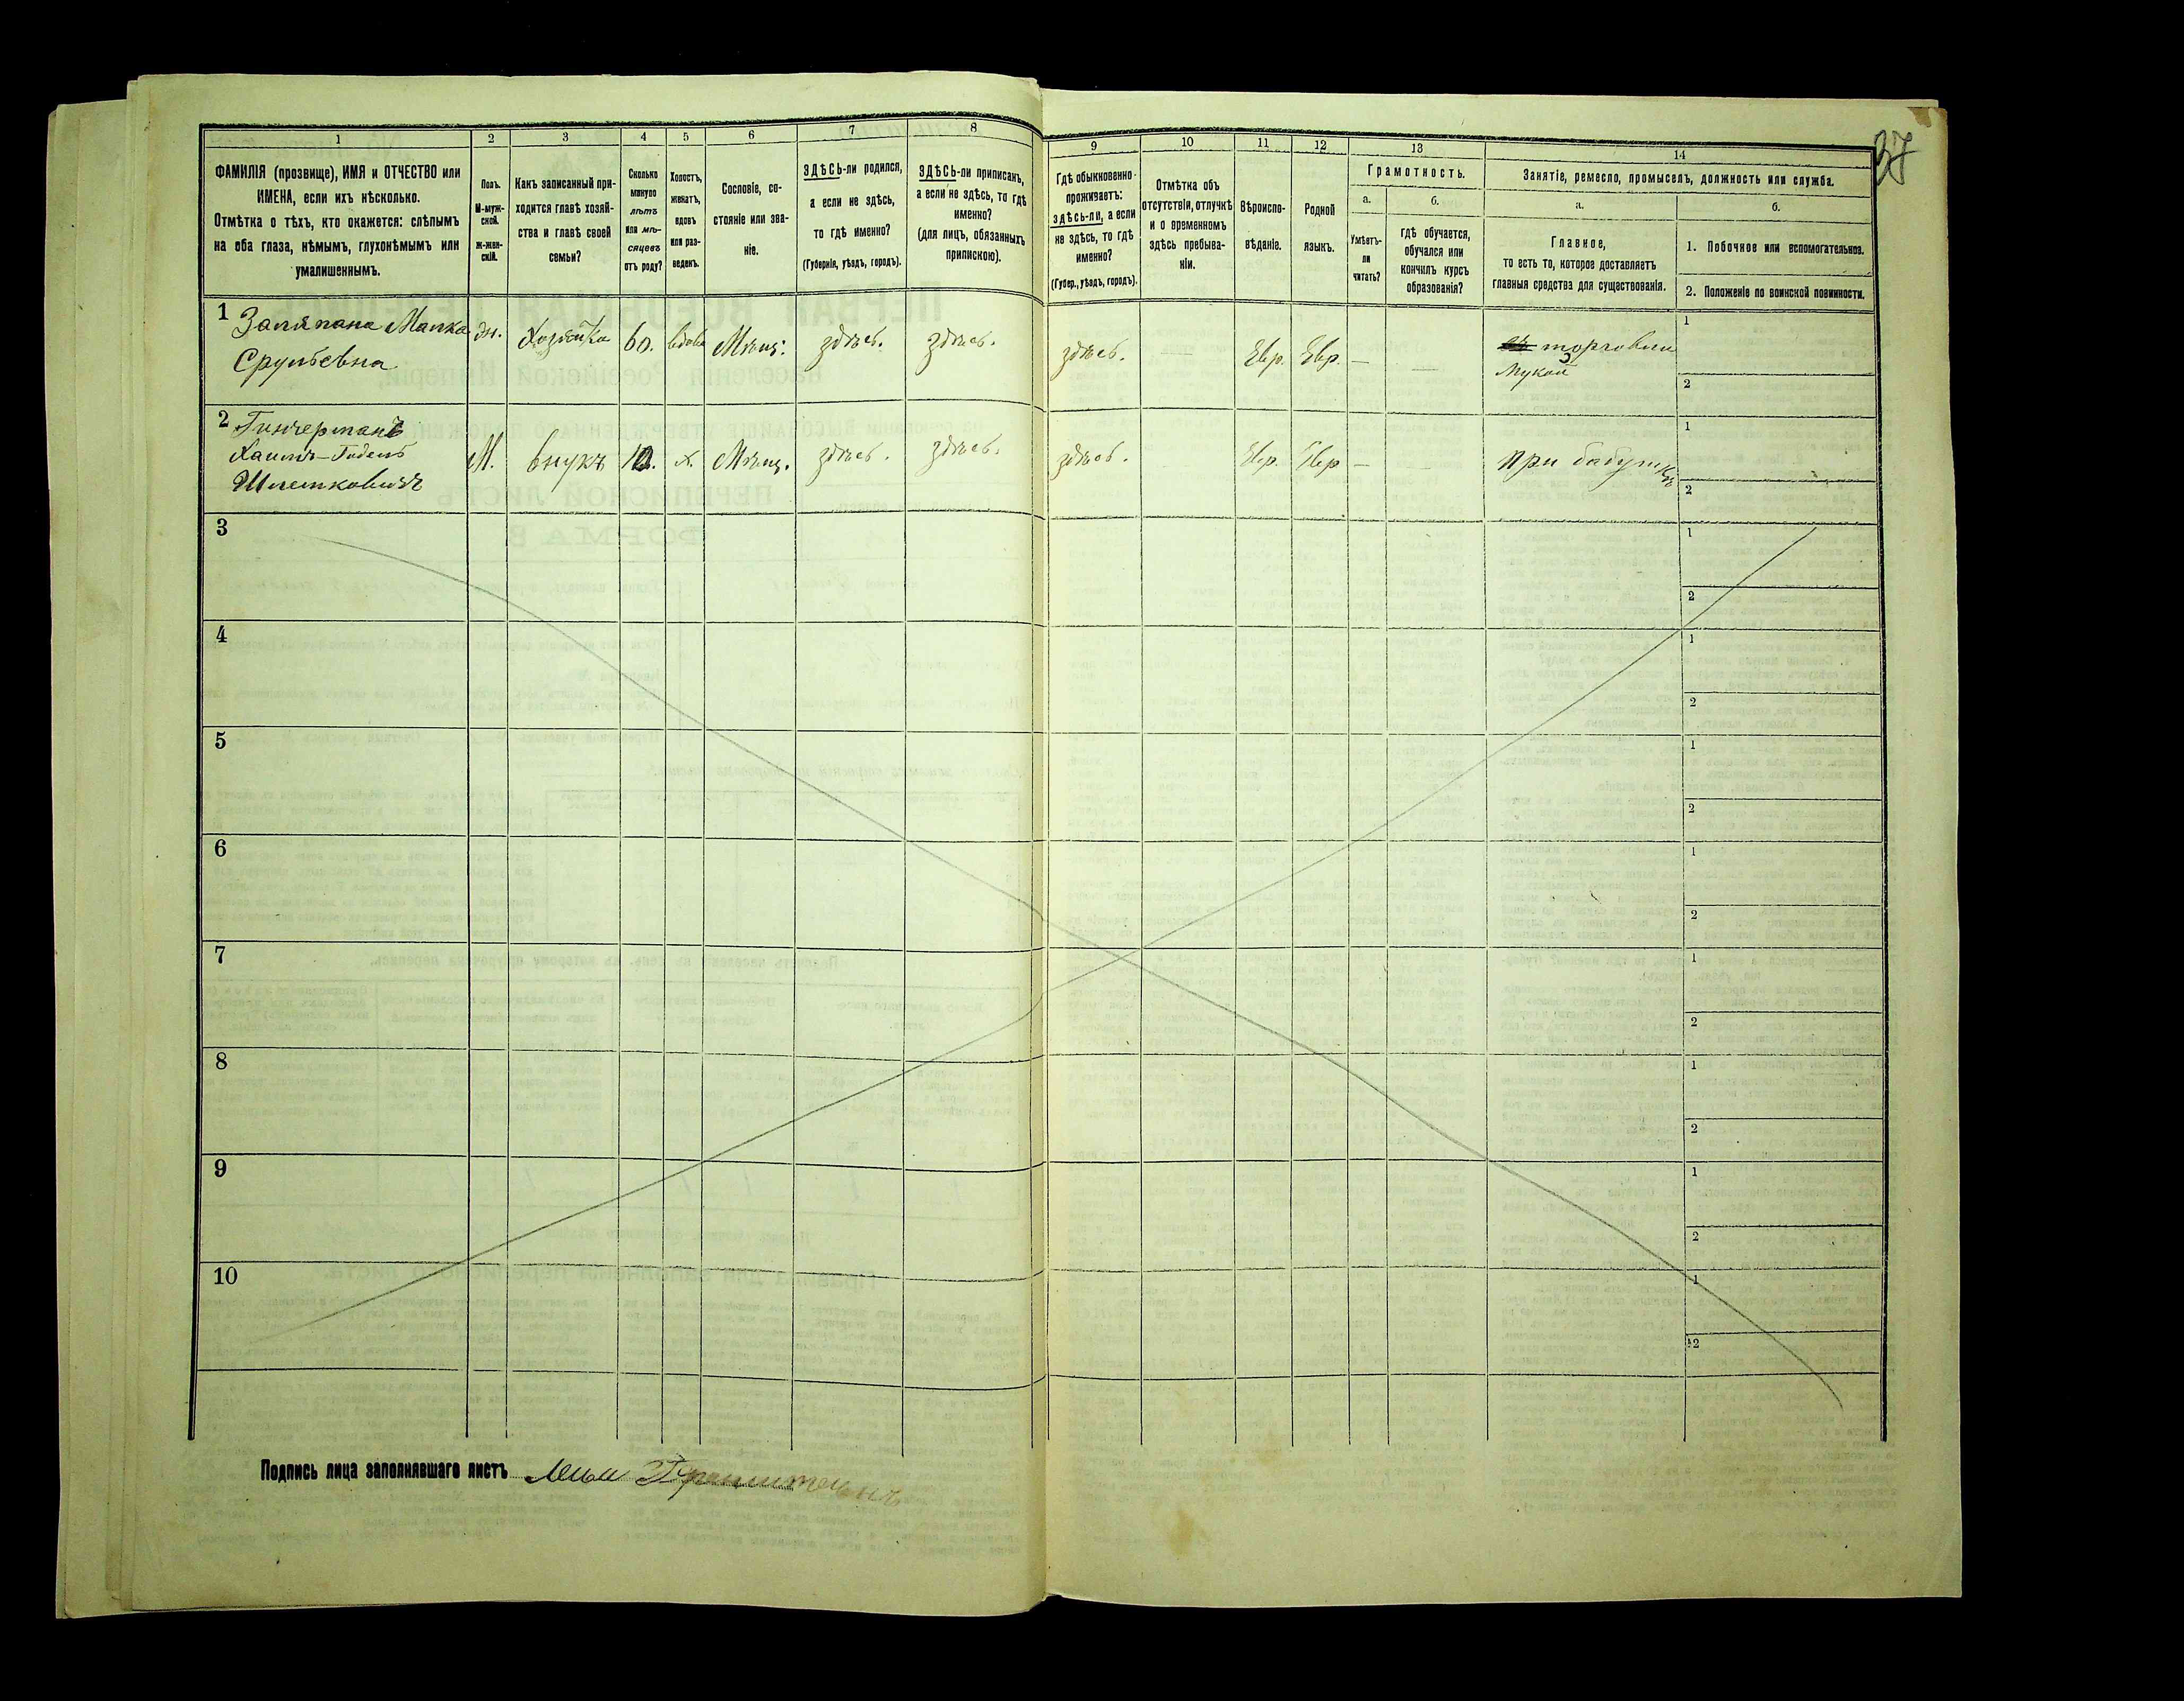 37
1
2
3
4
5
6
7
8
9
10
11
12
13
14
ФАМИЛІЯ (прозвище), ИМЯ и ОТЧЕСТВО или
ИМЕНА, если ихъ нѣсколько.
Отмѣтка о тѣхъ, кто окажется: слѣпымъ
на оба глаза, нѣмымъ, глухонѣмымъ или
умалишеннымъ.
Полъ.
М-муж-
ской.
Ж-жен-
скій.
Какъ записанный при-
ходится главѣ хозяй-
ства и главѣ своей
семьи?
Сколько
минуло
лѣтъ
или мѣ-
сяцевъ
отъ роду?
Холостъ,
женатъ,
вдовъ
или раз-
веденъ.
Сословіе, со-
стояніе или зва-
ніе.
ЗДѢСЬ-ли родился,
а если не здѣсь,
то гдѣ именно?
(Губернія, уѣздъ, городъ).
ЗДѢСЬ-ли приписанъ,
а если не здѣсь, то гдѣ
именно?
(для лицъ, обязанныхъ
припискою).
Гдѣ обыкновенно
проживаетъ:
здѣсь-ли, а если
не здѣсь, то гдѣ
именно?
(Губер., уѣздъ, городъ).
Отмѣтка объ
отсутствіи, отлучкѣ
и о временномъ
здѣсь пребыва-
ніи.
Вѣроиспо-
вѣданіе.
Родной
языкъ.
Грамотность.
а.
Умѣетъ-
ли
читать?
б.
гдѣ обучается,
обучался или
кончилъ курсъ
образованія?
Занятіе, ремесло, промыселъ, должность или служба.
а.
Главное,
то есть то, которое доставляетъ
главныя средства для существованія.
б.
1. Побочное или вспомогательное.
2. Положеніе по воинской повинности.
1
Малка
Срульевна
жн.
Хозяйка
60.
вдова
Мѣщ.
здѣсь.
здѣсь.
здѣсь.
—
Евр.
Евр.
—
—
торговли
мукой
1
2
2
Хаимъ-
М.
внукъ
х.
Мѣщ.
здѣсь.
здѣсь.
здѣсь.
Евр.
Евр
—
при бабушкѣ
1
2
3
1
2
4
1
2
5
1
2
6
1
2
7
1
2
8
1
2
9
1
2
10
1
2
Подпись лица заполнявшаго листъ